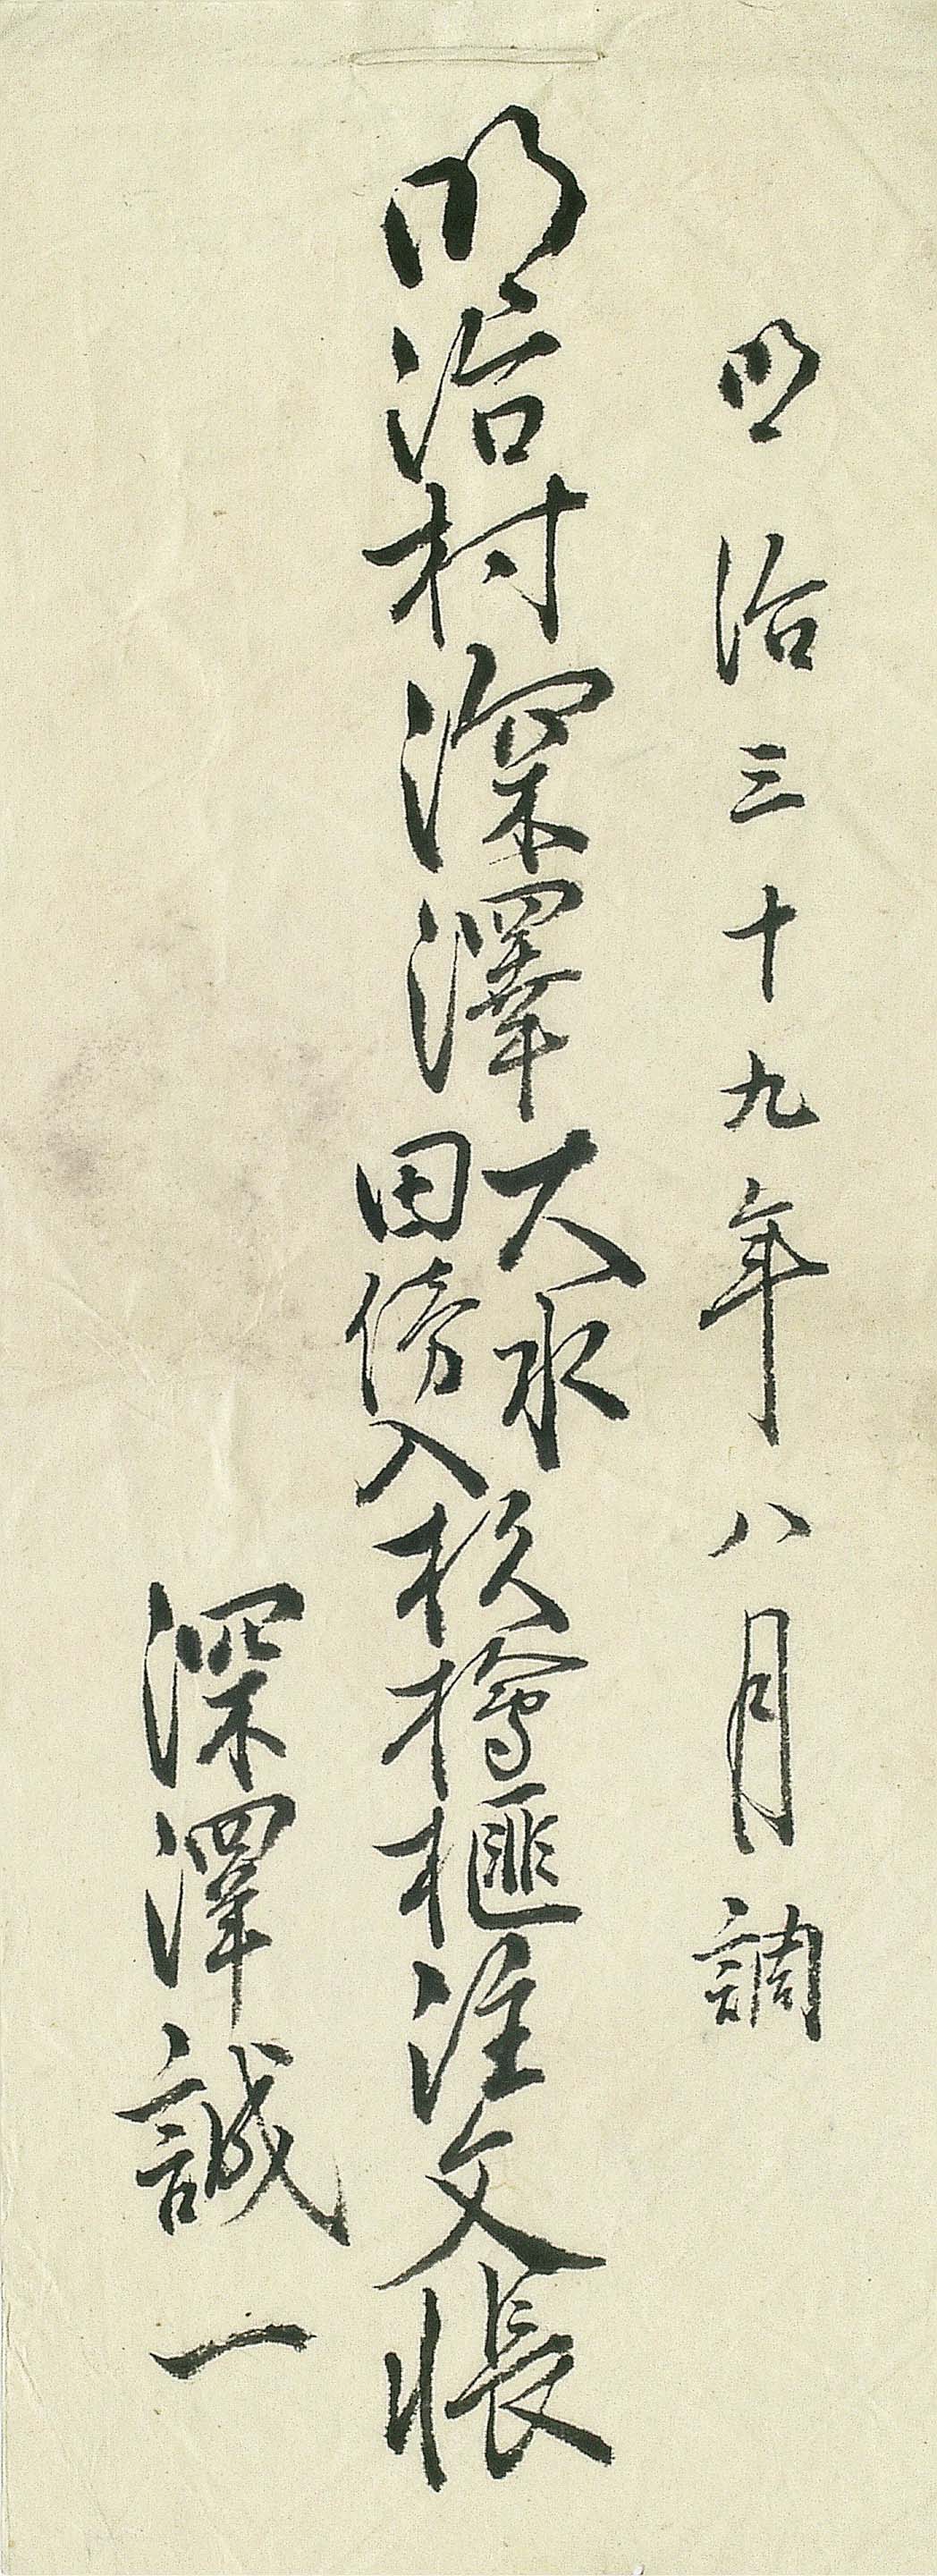 明治三十九年八月調
明治村深澤
大水
田傍入
杦檜榧注文帳
深澤誠一